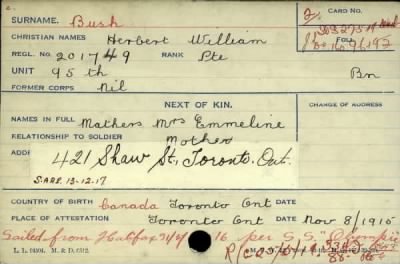 c.
SURNAME. Bush
CARD No.
CHRISTIAN NAMES Herbert William
REGL. No. 201749 RANK Pte
FOLL.
UNIT 95th Bn
FORMER CORPS Nil
NEXT OF KIN.
CHANGE OF ADDRESS
NAMES IN FULL Mathers Mrs Emmeline
RELATIONSHIP TO SOLDIER Mother
ADDR
421 Shaw St, Toronto. Ont.
S.ARE. 13-12-17
COUNTRY OF BIRTH Canada Toronto Ont DATE
PLACE OF ATTESTATION Toronto Ont DATE Nov 8/1915
Sailed from Halifax 16 per S.S. "Olympic"